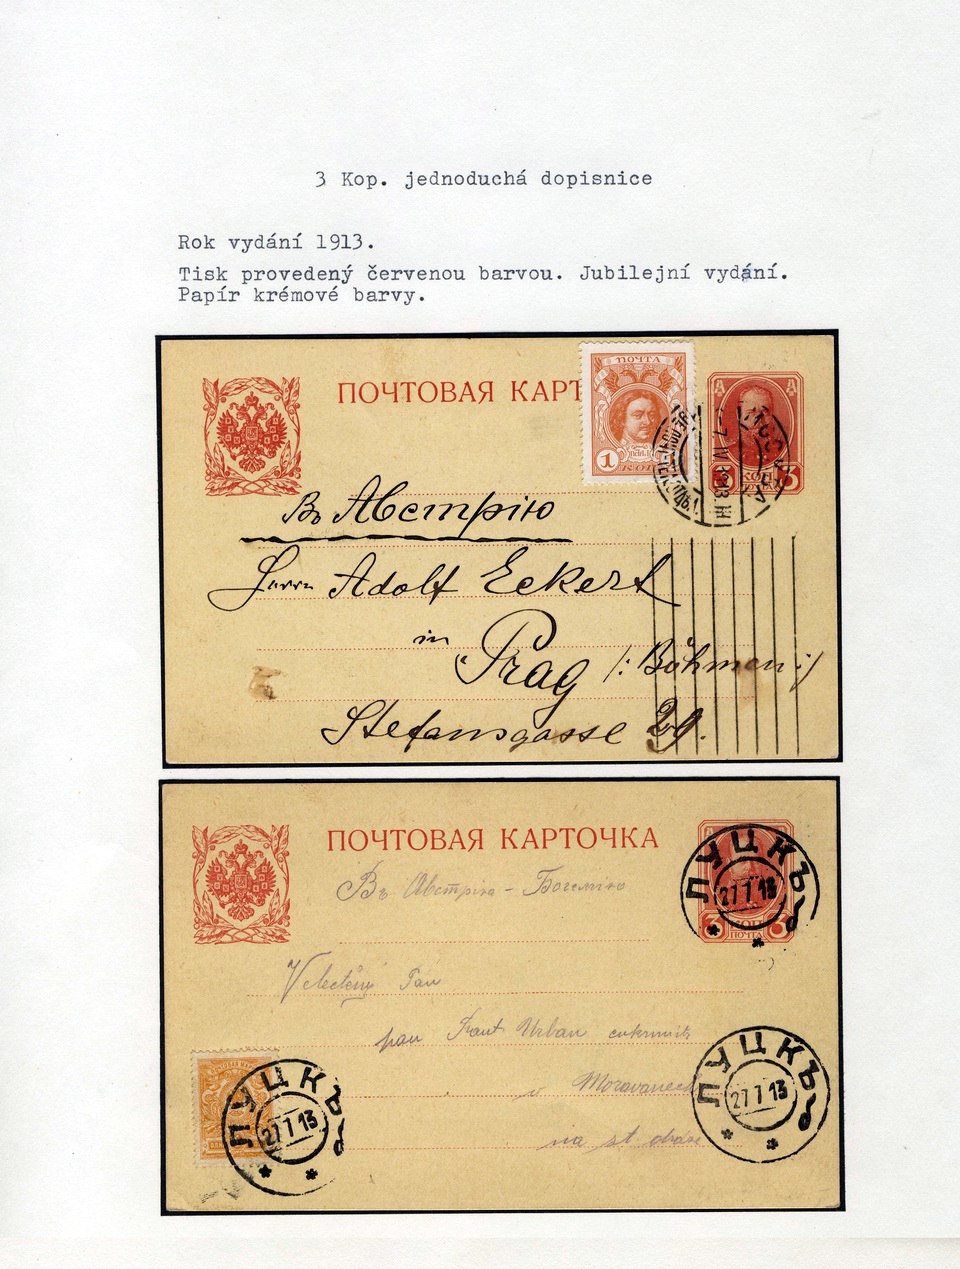 3 Kop. jednoduchá dopisnice
Rok vydání 1913.
Tisk provedený červenou barvou. Jubilejní vydání.
Papír krémové barvy.
ПОЧТОВАЯ КАРТ
ПОЧТА
1
КОП
3 КОП 3
Въ Австрію
Herrn Adolf Eckert
in Prag /: Böhmen :/
Stefansgasse 29.
ПОЧТОВАЯ КАРТОЧКА
ЛУЦКЪ
27 7 13
3 3
ПОЧТА
Въ Австрію - Богемію
Velectěný Pan
pan Frant Urban
v Moravanech
na st dráze
ЛУЦКЪ
27 7 13
ЛУЦКЪ
27 7 13